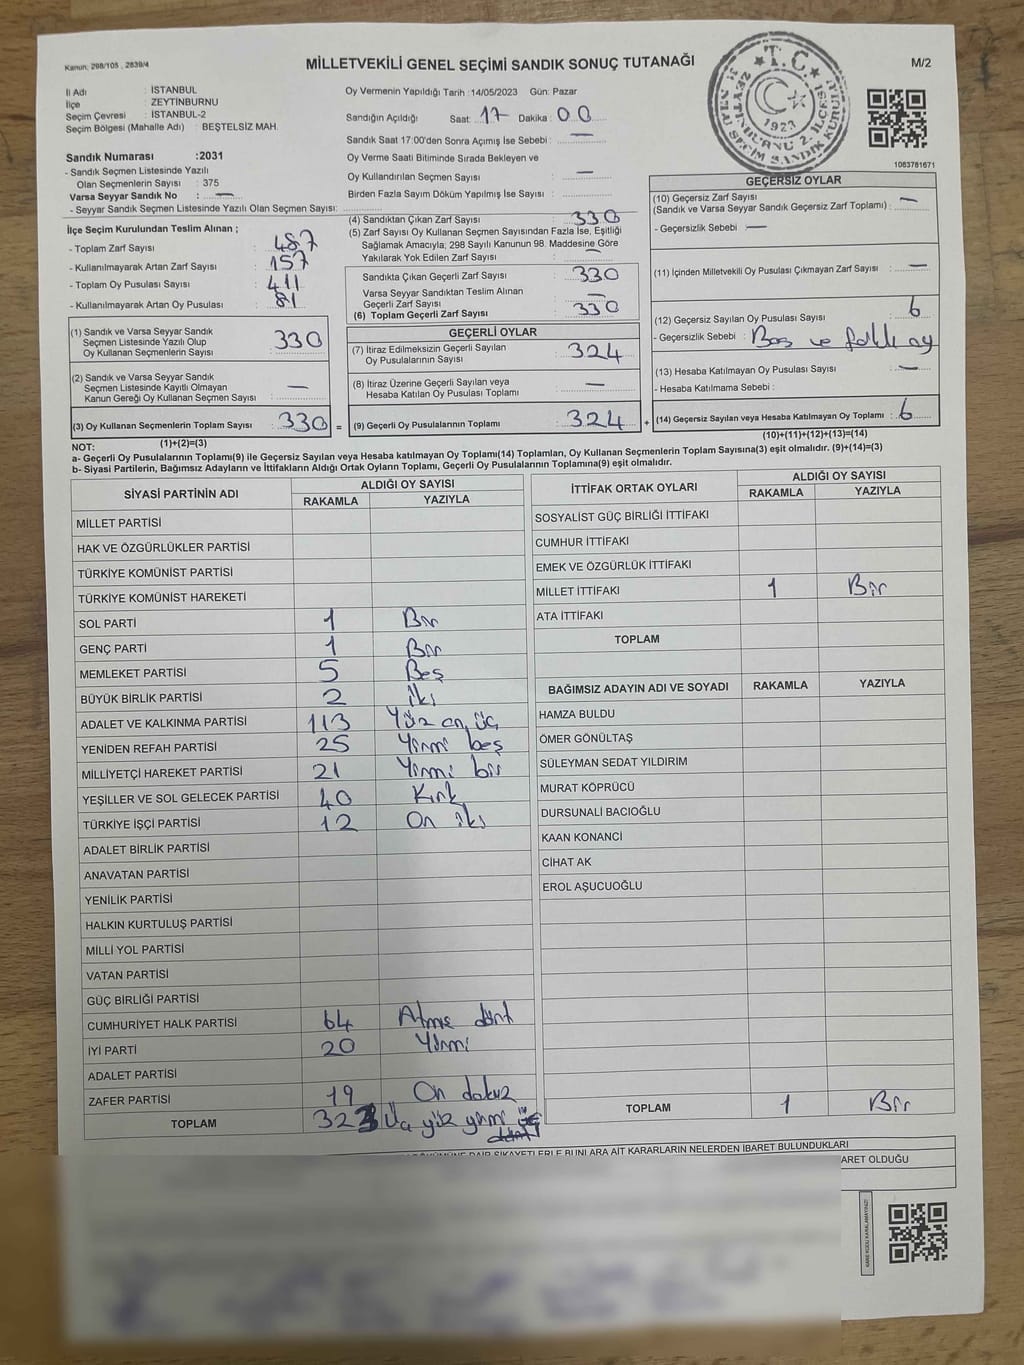 Kanun: 298/105 , 2839/4
MİLLETVEKİLİ GENEL SEÇİMİ SANDIK SONUÇ TUTANAĞI
M/2
İl Adı : İSTANBUL
İlçe : ZEYTİNBURNU
Seçim Çevresi : İSTANBUL-2
Seçim Bölgesi (Mahalle Adı) : BEŞTELSİZ MAH.
Sandık Numarası :2031
- Sandık Seçmen Listesinde Yazılı
Olan Seçmenlerin Sayısı : 375
Varsa Seyyar Sandık No : —
- Seyyar Sandık Seçmen Listesinde Yazılı Olan Seçmen Sayısı:
Oy Vermenin Yapıldığı Tarih : 14/05/2023 Gün: Pazar
Sandığın Açıldığı Saat: 17 Dakika: 00
Sandık Saat 17:00'den Sonra Açımış İse Sebebi : —
Oy Verme Saati Bitiminde Sırada Bekleyen ve
Oy Kullandırılan Seçmen Sayısı : —
Birden Fazla Sayım Döküm Yapılmış İse Sayısı :
T.C.
1923
1083781671
İlçe Seçim Kurulundan Teslim Alınan ;
- Toplam Zarf Sayısı : 487
- Kullanılmayarak Artan Zarf Sayısı : 157
- Toplam Oy Pusulası Sayısı : 411
- Kullanılmayarak Artan Oy Pusulası : 81
(1) Sandık ve Varsa Seyyar Sandık
Seçmen Listesinde Yazılı Olup
Oy Kullanan Seçmenlerin Sayısı 330
(2) Sandık ve Varsa Seyyar Sandık
Seçmen Listesinde Kayıtlı Olmayan
Kanun Gereği Oy Kullanan Seçmen Sayısı : —
(3) Oy Kullanan Seçmenlerin Toplam Sayısı : 330 =
(1)+(2)=(3)
(4) Sandıktan Çıkan Zarf Sayısı : 330
(5) Zarf Sayısı Oy Kullanan Seçmen Sayısından Fazla İse, Eşitliği
Sağlamak Amacıyla; 298 Sayılı Kanunun 98. Maddesine Göre
Yakılarak Yok Edilen Zarf Sayısı : —
Sandıkta Çıkan Geçerli Zarf Sayısı : 330
Varsa Seyyar Sandıktan Teslim Alınan
Geçerli Zarf Sayısı : —
(6) Toplam Geçerli Zarf Sayısı : 330
GEÇERLİ OYLAR
(7) İtiraz Edilmeksizin Geçerli Sayılan
Oy Pusulalarının Sayısı : 324
(8) İtiraz Üzerine Geçerli Sayılan veya
Hesaba Katılan Oy Pusulası Toplamı : —
(9) Geçerli Oy Pusulalarının Toplamı : 324 +
GEÇERSİZ OYLAR
(10) Geçersiz Zarf Sayısı
(Sandık ve Varsa Seyyar Sandık Geçersiz Zarf Toplamı) : —
- Geçersizlik Sebebi : —
(11) İçinden Milletvekili Oy Pusulası Çıkmayan Zarf Sayısı : —
(12) Geçersiz Sayılan Oy Pusulası Sayısı : 6
- Geçersizlik Sebebi : Boş ve farklı oy
(13) Hesaba Katılmayan Oy Pusulası Sayısı : —
- Hesaba Katılmama Sebebi :
(14) Geçersiz Sayılan veya Hesaba Katılmayan Oy Toplamı : 6
(10)+(11)+(12)+(13)=(14)
NOT:
a- Geçerli Oy Pusulalarının Toplamı(9) ile Geçersiz Sayılan veya Hesaba katılmayan Oy Toplamı(14) Toplamları, Oy Kullanan Seçmenlerin Toplam Sayısına(3) eşit olmalıdır. (9)+(14)=(3)
b- Siyasi Partilerin, Bağımsız Adayların ve İttifakların Aldığı Ortak Oyların Toplamı, Geçerli Oy Pusulalarının Toplamına(9) eşit olmalıdır.
SİYASİ PARTİNİN ADI ALDIĞI OY SAYISI
RAKAMLA YAZIYLA
MİLLET PARTİSİ
HAK VE ÖZGÜRLÜKLER PARTİSİ
TÜRKİYE KOMÜNİST PARTİSİ
TÜRKİYE KOMÜNİST HAREKETİ
SOL PARTİ 1 Bir
GENÇ PARTİ 1 Bir
MEMLEKET PARTİSİ 5 Beş
BÜYÜK BİRLİK PARTİSİ 2 iki
ADALET VE KALKINMA PARTİSİ 113 Yüz on üç
YENİDEN REFAH PARTİSİ 25 Yirmi beş
MİLLİYETÇİ HAREKET PARTİSİ 21 Yirmi bir
YEŞİLLER VE SOL GELECEK PARTİSİ 40 Kırk
TÜRKİYE İŞÇİ PARTİSİ 12 On iki
ADALET BİRLİK PARTİSİ
ANAVATAN PARTİSİ
YENİLİK PARTİSİ
HALKIN KURTULUŞ PARTİSİ
MİLLİ YOL PARTİSİ
VATAN PARTİSİ
GÜÇ BİRLİĞİ PARTİSİ
CUMHURİYET HALK PARTİSİ 64 Atmış dört
İYİ PARTİ 20 Yirmi
ADALET PARTİSİ
ZAFER PARTİSİ 19 On dokuz
TOPLAM 323 Üç yüz yirmi üç
İTTİFAK ORTAK OYLARI ALDIĞI OY SAYISI
RAKAMLA YAZIYLA
SOSYALİST GÜÇ BİRLİĞİ İTTİFAKI
CUMHUR İTTİFAKI
EMEK VE ÖZGÜRLÜK İTTİFAKI
MİLLET İTTİFAKI 1 Bir
ATA İTTİFAKI
TOPLAM
BAĞIMSIZ ADAYIN ADI VE SOYADI RAKAMLA YAZIYLA
HAMZA BULDU
ÖMER GÖNÜLTAŞ
SÜLEYMAN SEDAT YILDIRIM
MURAT KÖPRÜCÜ
DURSUNALİ BACIOĞLU
KAAN KONANCİ
CİHAT AK
EROL AŞUCUOĞLU
TOPLAM 1 Bir
ŞİKAYETLERLE BUNLARA AİT KARARLARIN NELERDEN İBARET BULUNDUKLARI
ARET OLDUĞU